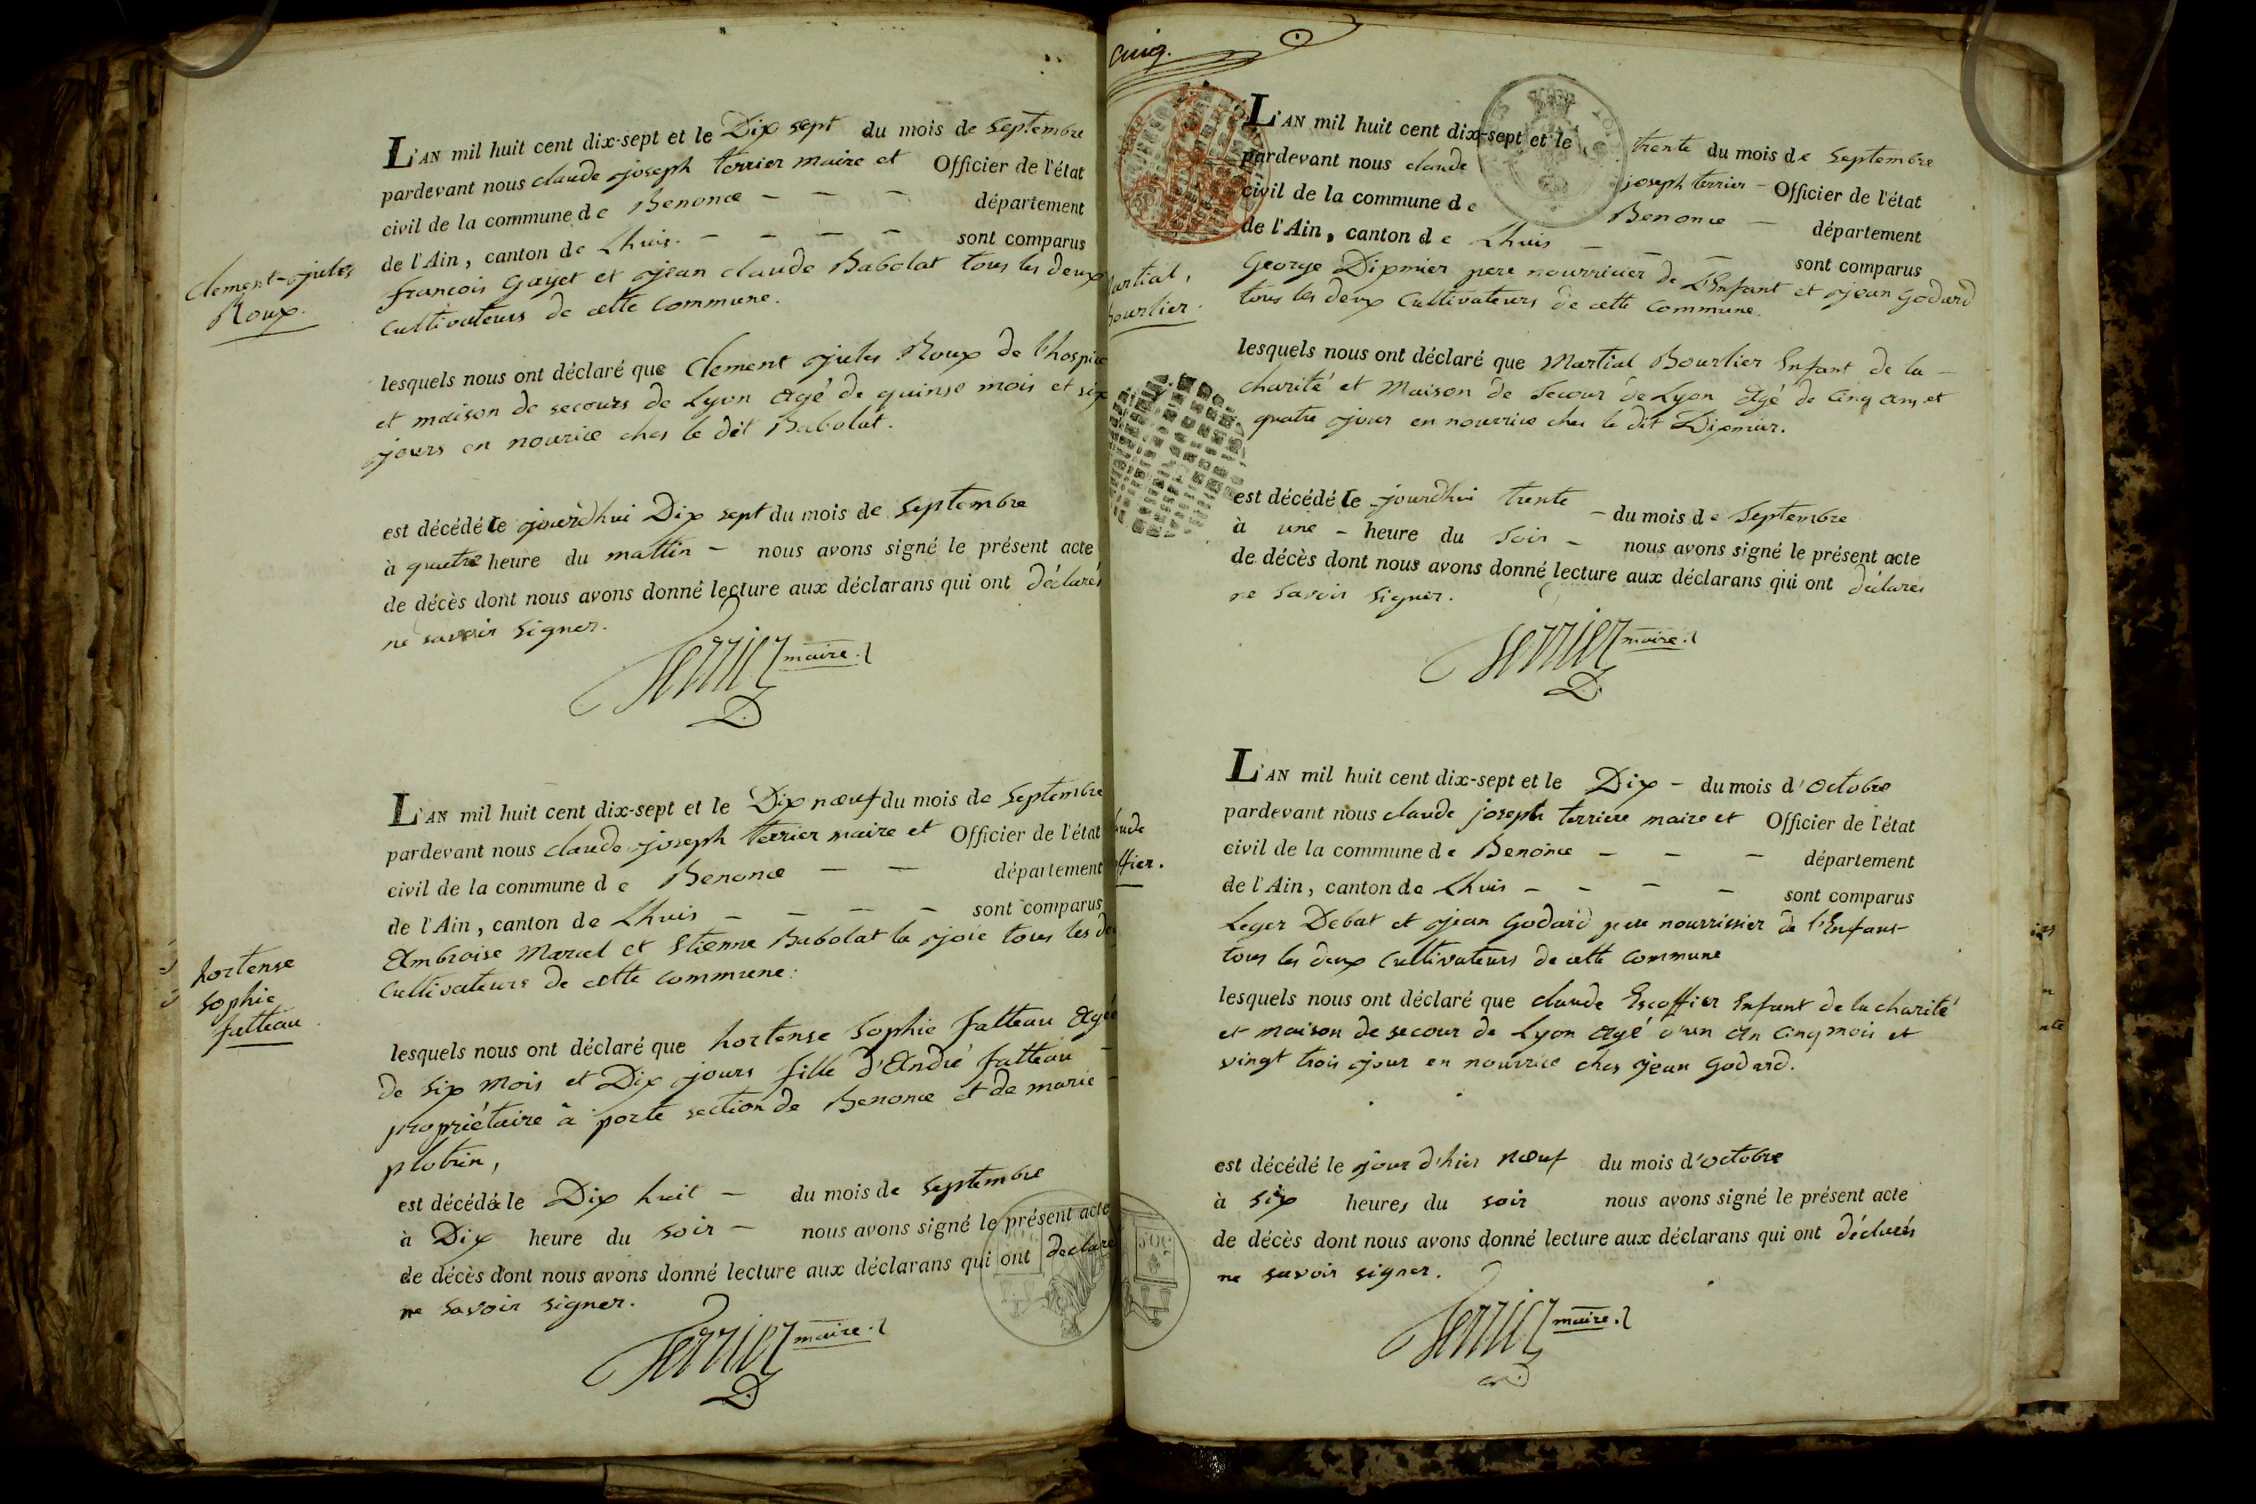 L'AN mil huit cent dix-sept et le Dix sept du mois de Septembre
pardevant nous claude joseph terrier maire et Officier de l'état
civil de la commune de Benonce — — — département
de l'Ain, canton de Lhuis. — — — — sont comparus
Clement-jules
Roux.
francois Gayet et jean claude Babolat tous les deux
Cultivateurs de cette commune.
lesquels nous ont déclaré que Clement jules Roux de l'hospice
et maison de secours de Lyon Agé de quinse mois et six
jours en nourice ches le dit Babolat.
est décédé le jourd'hui Dix sept du mois de Septembre
à quatre heure du mattin — nous avons signé le présent acte
de décès dont nous avons donné lecture aux déclarans qui ont déclarés
ne savoir signer.
Terrier maire.
L'AN mil huit cent dix-sept et le Dix nœuf du mois de Septembre
pardevant nous claude joseph terrier maire et Officier de l'état
civil de la commune de Benonce — — département
de l'Ain, canton de Lhuis — — — — sont comparus
Ambroise Marcel et Etienne Babolat la joie tous les de
Cultivateurs de cette commune:
hortense
Sophie
fatteau
lesquels nous ont déclaré que hortense Sophie fatteau Agée
de Six mois et Dix jours fille d'André fatteau —
propriétaire à porte section de Benonce et de marie
plobrin,
est décédée le Dix huit — du mois de Septembre
à Dix heure du Soir — nous avons signé le présent acte
de décès dont nous avons donné lecture aux déclarans qui ont declaré
ne Savoir Signer.
Terrier maire.
Cinq.
L'AN mil huit cent dix-sept et le trente du mois de Septembre
pardevant nous claude joseph terrier — Officier de l'état
civil de la commune de Benonce — département
de l'Ain, canton de Lhuis — — — sont comparus
artial,
ourlier.
George Dipmier pere nourricier de L'Enfant et jean Godard
tous les deux Cultivateurs de cette commune.
lesquels nous ont déclaré que Martial Bourlier Enfant de la —
charité et Maison de Secour de Lyon Agé de Cinq ans et
quatre jour en nourrice ches le dit Dipmier.
est décédé le jourdhui trente — du mois de Septembre
à une — heure du Soir — nous avons signé le présent acte
de décès dont nous avons donné lecture aux déclarans qui ont déclarés
ne savoir signer.
Terrier maire.
L'AN mil huit cent dix-sept et le Dix — du mois d'Octobre
pardevant nous claude joseph terrier maire et Officier de l'état
civil de la commune de Benonce — — — département
de l'Ain, canton de Lhuis — — — — sont comparus
aude
ffier.
Leger Debat et jean Godard pere nourrissier de l'Enfant
tous les deux Cultivateurs de cette commune
lesquels nous ont déclaré que claude Escoffier Enfant de la charité
et maison de secour de Lyon Agé d'un An Cinq mois et
vingt trois jour en nourrice ches jean Godard.
est décédé le jour d'hier Nœuf du mois d'octobre
à Six heures du soir nous avons signé le présent acte
de décès dont nous avons donné lecture aux déclarans qui ont déclarés
ne savoir signer.
Terrier maire.